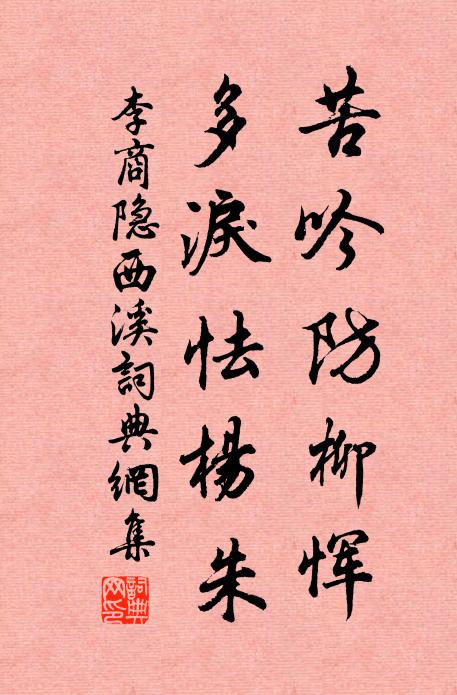 苦吟防柳恽
多淚怯楊朱
李商隐西溪詞典網集
詞典網印